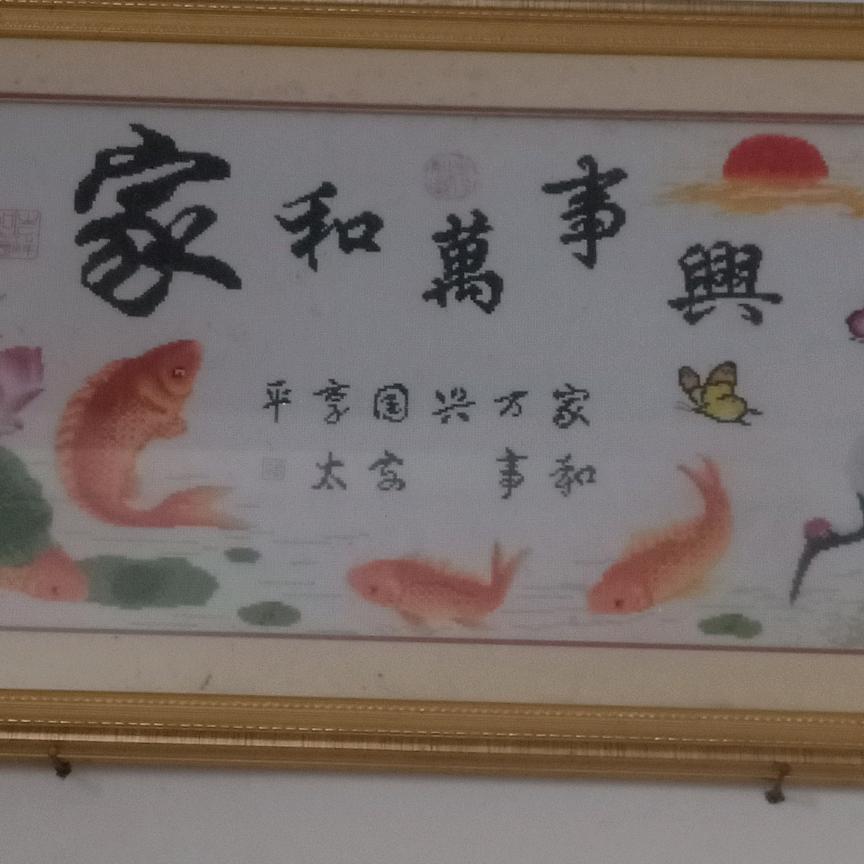 家和萬事興
家和
万事
兴
国家
享太
平